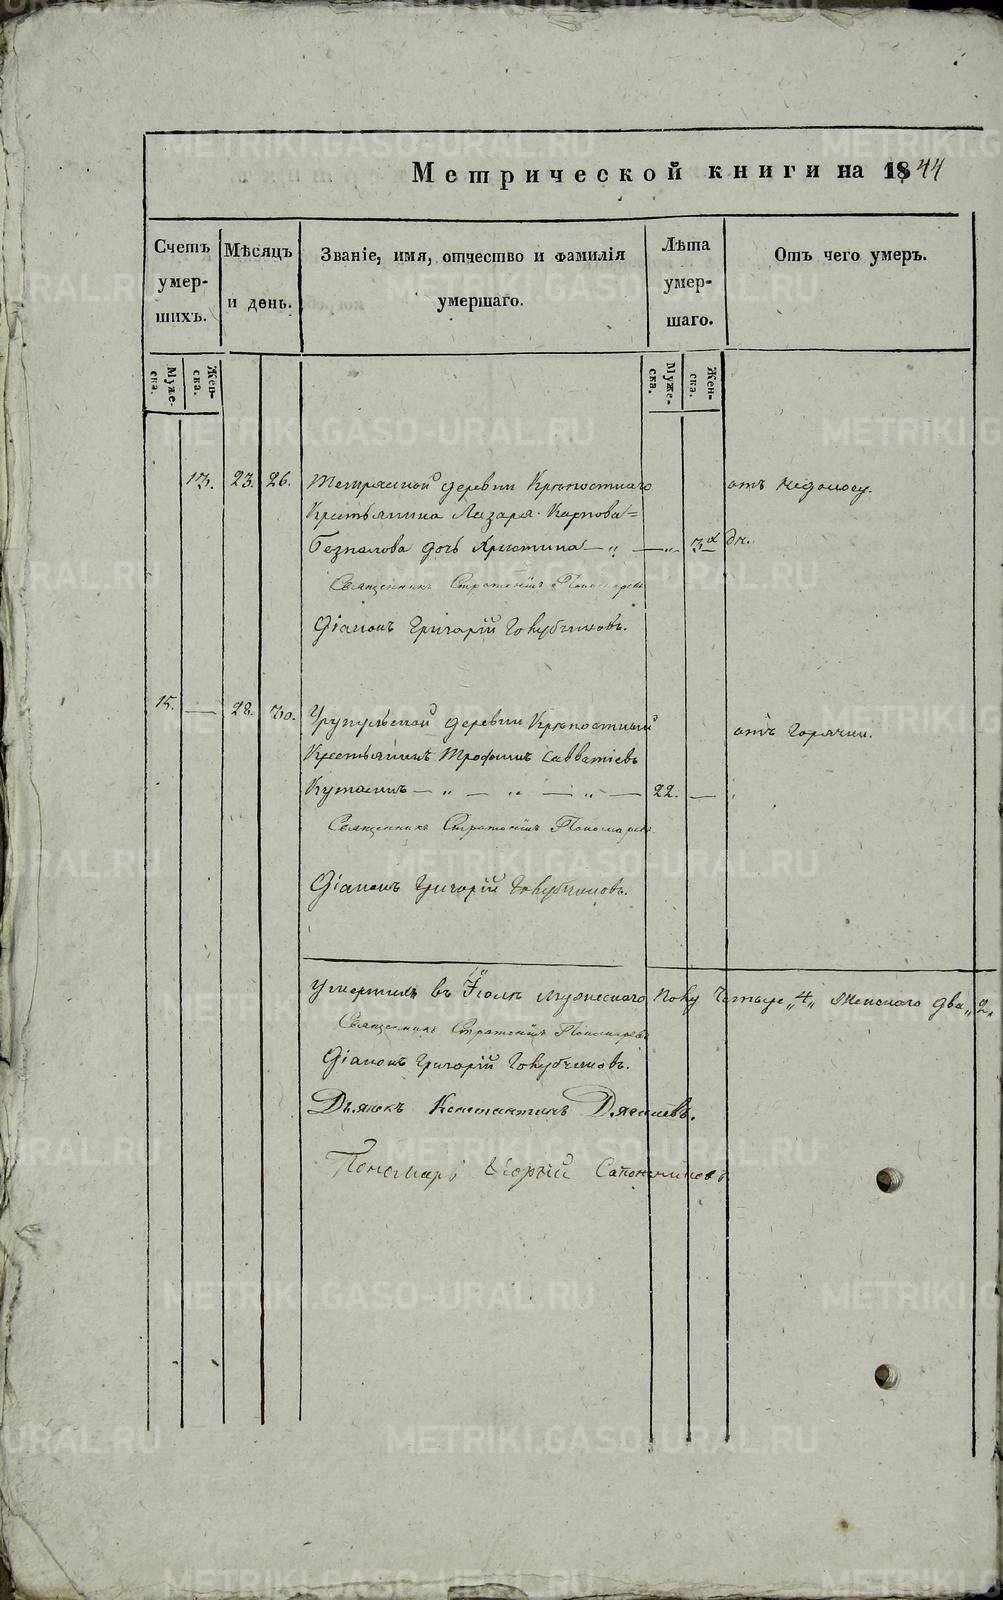 Метрической книги на 1844
Счетъ умерших.
Мѣсяцъ и день.
Званіе, имя, отчество и фамилія умершаго.
Лѣта умершаго.
Отъ чего умеръ.
Мужеска.
Женска.
Мужеска.
Женска.
13. 23. 26. деревни Крѣпостнаго отъ недоносу.
Крестьянина Лазаря Карпова
дочь Христина — „ — „ 3 дн.
Священникъ Стратоникъ Пономаревъ
Діаконъ Григорій Голубчиковъ.
15. — 28. 30. деревни Крѣпостный отъ горячки.
Крестьянинъ Трофимъ Савватіевъ
— „ — „ — „ — 22. —
Священникъ Стратоникъ Пономаревъ
Діаконъ Григорій Голубчиковъ.
въ Іюлѣ мужескаго полу четыре „4„ Женскаго два „2„
Священникъ Стратоникъ Пономаревъ
Діаконъ Григорій Голубчиковъ.
Дьячекъ Константинъ Дягилевъ.
Пономарь Сапожниковъ
METRIKI.GASO-URAL.RU